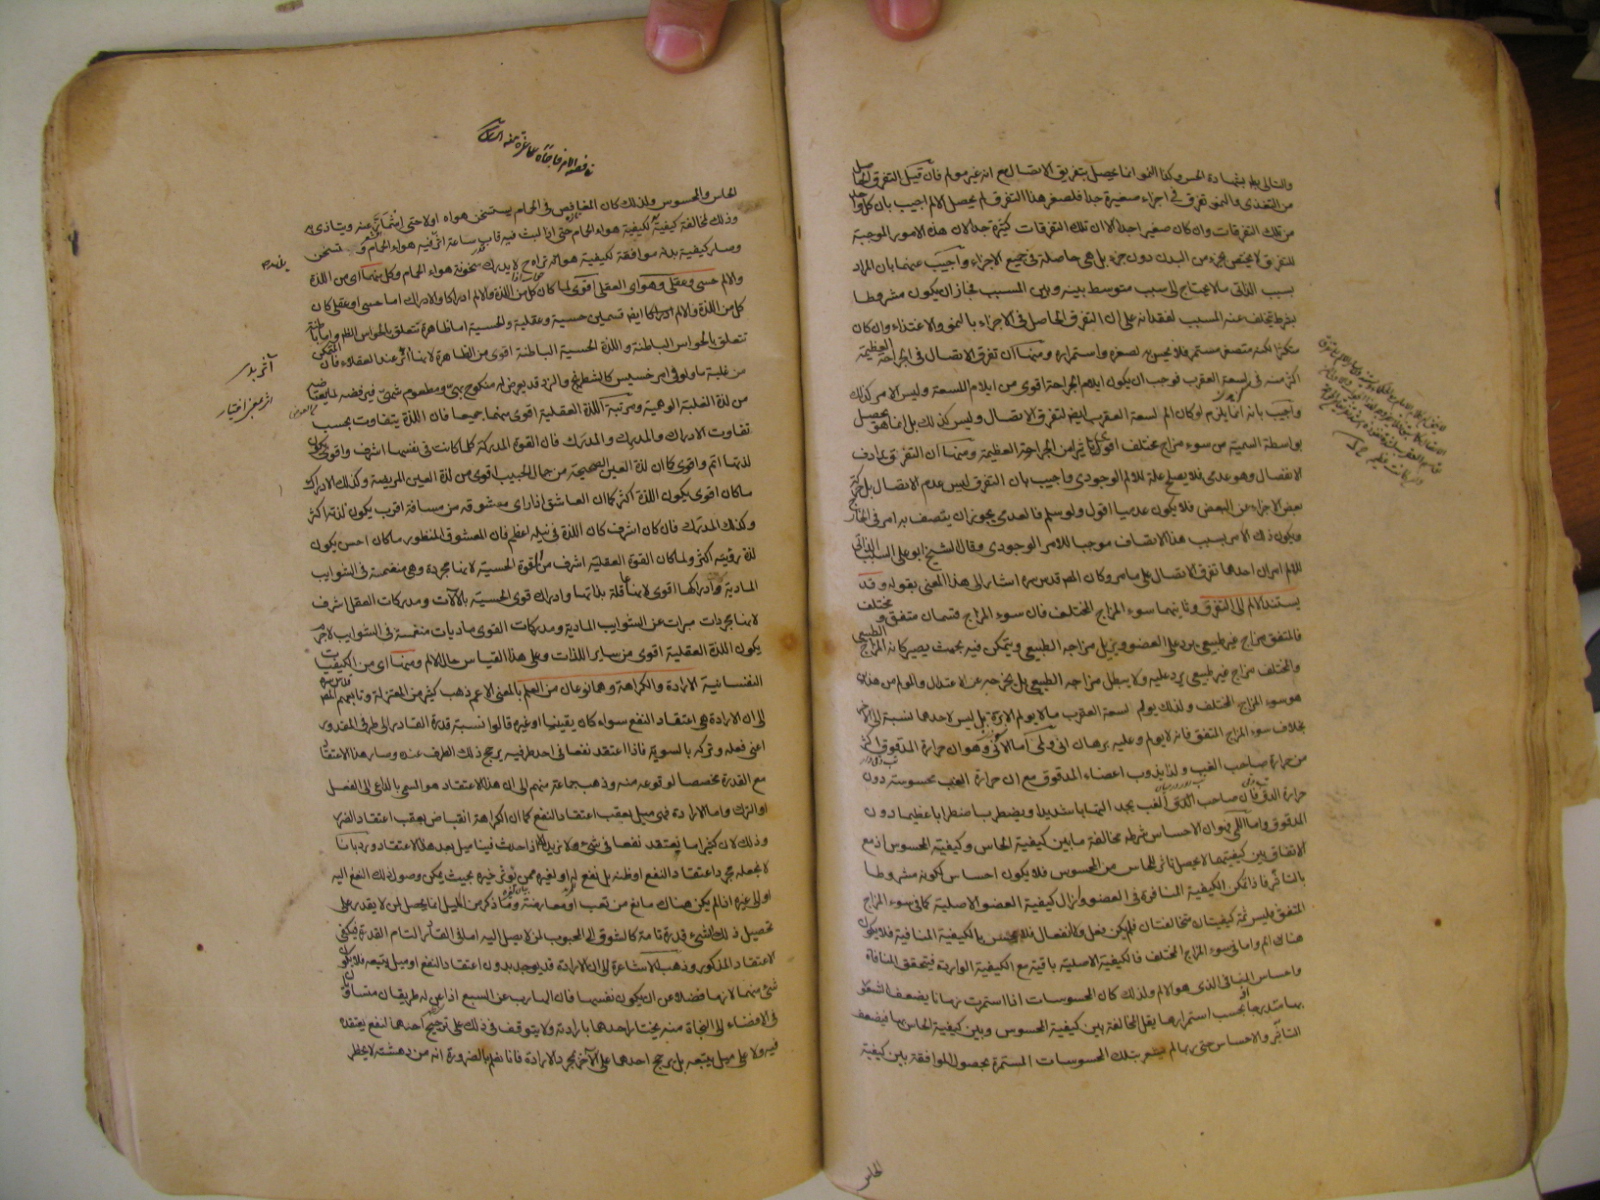 والتالي باطل بشهادة الحس وكذا النمو انما يحصل بتفريق الاتصال مع انه غير مولم فان قيل التفرق الحاصل
من التغذى والنمو تفرق في اجزاء صغيرة جدا فلصغر هذا التفرق لم يحصل الالم اجيب بان كل واحد
من تلك التفرقات وان كان صغيرا جدا الا ان تلك التفرقات كثيرة جدا لان هذه الامور الموجبة
للتفرق لا يختص بجزء من البدن دون جزء بل هي حاصلة في جميع الاجزاء واجيب عنهما بان المراد
بسبب الذاتي ما لا يحتاج الى سبب متوسط بينه وبين المسبب فجاز ان يكون مشروطا
بشرط يتخلف عنه المسبب لفقدانه على ان التفرق الحاصل في الاجزاء بالنمو والاغتذاء وان كان
متكثرا لكنه متصغر مستمر فلا يحس به لصغره واستمراره ومنها ان تفرق الاتصال في الجراحة العظيمة
اكثر منه في لسعة العقرب فوجب ان يكون ايلام الجراحة اقوى من ايلام اللسعة وليس الامر كذلك
واجيب بانه انما يلزم لو كان الم لسعة العقرب ايضا لتفرق الاتصال وليس كذلك بل انما هو يحصل
بواسطة السمية من سوء مزاج مختلف اقوى تاثيرا من الجراحة العظيمة ومنها ان التفرق يرادف
الانفصال وهو عدمي فلا يصلح علة للالم الوجودي واجيب بان التفرق ليس عدم الاتصال بل حركة
بعض الاجزاء عن البعض فلا يكون عدميا اقول ولو سلم فالعدمي يجوز ان يتصف به امر في الخارج
ويكون ذلك الامر بسبب هذا الاتصاف موجبا للامر الوجودي وقال الشيخ ابو علي السبب الذاتي
للالم امران احدهما تفرق الاتصال على ما مر وكان المص قدس سره اشار الى هذا المعنى بقوله وقد
يستند الالم الى التفرق وثانيهما سوء المزاج المختلف فان سوء المزاج قسمان متفق ومختلف
فالمتفق مزاج غير طبيعي يرد على العضو ويزيل مزاجه الطبيعي ويتمكن فيه بحيث يصير كانه المزاج الطبيعي
والمختلف مزاج غير طبيعي يرد عليه ولا يبطل مزاجه الطبيعي بل يخرجه عن الاعتدال والمولم من هذين
هو سوء المزاج المختلف ولذلك يولم لسعة العقرب ما لا يولم الابرة بل ليس لاحدهما نسبة الى الاخر
بخلاف سوء المزاج المتفق فانه لا يولم وعليه برهان اني ولمي اما الاني وهو ان حرارة المدقوق اكثر
من حرارة صاحب الغب ولذا يذوب اعضاء المدقوق مع ان حرارة الغب محسوسة دون
حرارة الدق فان صاحب الغب يجد التهابا شديدا ويضطرب اضطرابا عظيما دون
المدقوق واما اللمي فهو ان الاحساس شرطه مخالفة ما بين كيفية الحاس وكيفية المحسوس اذ مع
الاتفاق بين كيفيتهما لا يحصل تاثر للحاس من المحسوس فلا يكون احساس لكونه مشروطا
بالتاثر فاذا تمكن الكيفية المنافرة في العضو وازال كيفية العضو الاصلية كما في سوء المزاج
المتفق فليس ثمة كيفيتان متخالفتان فلم يكن فعل وانفعال فلا يحس بالكيفية المنافية فلا يكون
هناك الم واما في سوء المزاج المختلف فالكيفية الاصلية باقية مع الكيفية الواردة فيتحقق المنافاة
واحساس المنافي الذي هو الالم ولذلك كان المحسوسات اذا استمرت زمانا يضعف الشعور
بها متدرجا بحسب استمرارها يقل المخالفة بين كيفية المحسوس وبين كيفية الحاس بها فيضعف
التاثر والاحساس حتى ربما لم يشعر بتلك المحسوسات المستمرة بحصول الموافقة بين كيفية
الحاس
الحاس والمحسوس ولذلك كان المغافص في الحمام يستسخن هواه اولا حتى اشمأز عنه ويتاذى به
وذلك لمخالفة كيفية بدنه لكيفية هواء الحمام حتى اذا لبث فيه قاب ساعة اثر فيه هواء الحمام وتسخن
وصار كيفية بدنه موافقة لكيفية هوائه تراوح لا يدرك سخونة هواء الحمام وكل منهما اى من اللذة
والالم حسي وعقلي وهو اى العقلي اقوى لما كان كل من اللذة والالم ادراكا والادراك اما حسي او عقلي كان
كل من اللذة والالم ايضا قسمين حسية وعقلية والحسية اما ظاهرة تتعلق بالحواس الظاهرة واما باطنة
تتعلق بالحواس الباطنة واللذة الحسية الباطنة اقوى من الظاهرة لانها اثر عند العقلاء فان المتمكن
من غلبة ما ولو في امر خسيس كالشطرنج والنرد قد يعرض له منكوح بهي ومطعوم شهي فيرفضه لما يعتاضه
من لذة الغلبة الوهمية ومرتبة اللذة العقلية اقوى منهما جميعا فان اللذة يتفاوت بحسب
تفاوت الادراك والمدرِك والمدرَك فان القوة المدركة كلما كانت في نفسها اشرف واقوى يكون
لذتها اتم واقوى كما ان لذة العين الصحيحة من جمال الحبيب اقوى من لذة العين المريضة وكذلك الادراك
ما كان اقوى يكون اللذة اكثر كما ان العاشق اذا رأى معشوقه من مسافة اقرب يكون لذته اكثر
وكذلك المدرك فان كان اشرف كان اللذة في نيله اعظم فان المعشوق المنظور ما كان احسن يكون
لذة رؤيته اكثر ولما كان القوة العقلية اشرف من القوة الحسية لانها مجردة وهي منغمسة في الشوايب
المادية وادراكها اقوى لانها عاقلة بذاتها وادراك قوى الحسية بالآلات ومدركات العقل اشرف
لانها مجردات مبرات عن الشوايب المادية ومدركات القوى ماديات منغمسة في الشوايب لا جرم
يكون اللذة العقلية اقوى من ساير اللذات وعلى هذا القياس حال الالم ومنها اى من الكيفيات
النفسانية الارادة والكراهة وهما نوعان من العلم بالمعنى الاعم ذهب كثير من المعتزلة وتابعهم المص قدس سره
الى ان الارادة هي اعتقاد النفع سواء كان يقينيا او غيره قالوا نسبة قدرة القادر الى طرفي المقدور
اعنى فعله وتركه بالسوية فاذا اعتقد نفعا في احد طرفيه يرجح ذلك الطرف عنده وصار هذا الاعتقاد
مع القدرة مخصصا لوقوعه منه وذهب جماعة منهم الى ان هذا الاعتقاد هو المسمى بالداعي الى الفعل
او الترك واما الارادة فهي ميل يعقب اعتقاد النفع كما ان الكراهة انقباض يعقب اعتقاد الضرر
وذلك لان كثيرا ما يعتقد نفعا في شيء ولا نريده الا اذا حدث فينا ميل بعد هذا الاعتقاد ورد بانا
لا نجعله مجرد اعتقاد النفع او ظنه بل نفع له او لغيره ممن يؤثر خيره بحيث يمكن وصول ذلك النفع اليه
او الى غيره اذا لم يكن هناك مانع من تعب او معارضة وما ذكر من الميل انما يحصل لمن لا يقدر على
تحصيل ذلك الشيء قدرة تامة كالشوق الى المحبوب لمن لا يصل اليه اما في القادر التام القدرة فيكفي
الاعتقاد المذكور وذهب الاشاعرة الى ان الارادة قد يوجد بدون اعتقاد النفع او ميل يتبعه فلا يكون
شيء منهما لازما فضلا عن ان يكون نفسها فان الهارب عن السبع اذا عن له طريقان متساويان
في الافضاء الى النجاة منه يختار احدهما بارادته ولا يتوقف في ذلك على ترجيح احدهما لنفع يعتقده
فيه ولا على ميل يتبعه بل يرجح احدهما على الآخر بمجرد الارادة فانا نعلم بالضرورة انه من دهشته لا يخطر